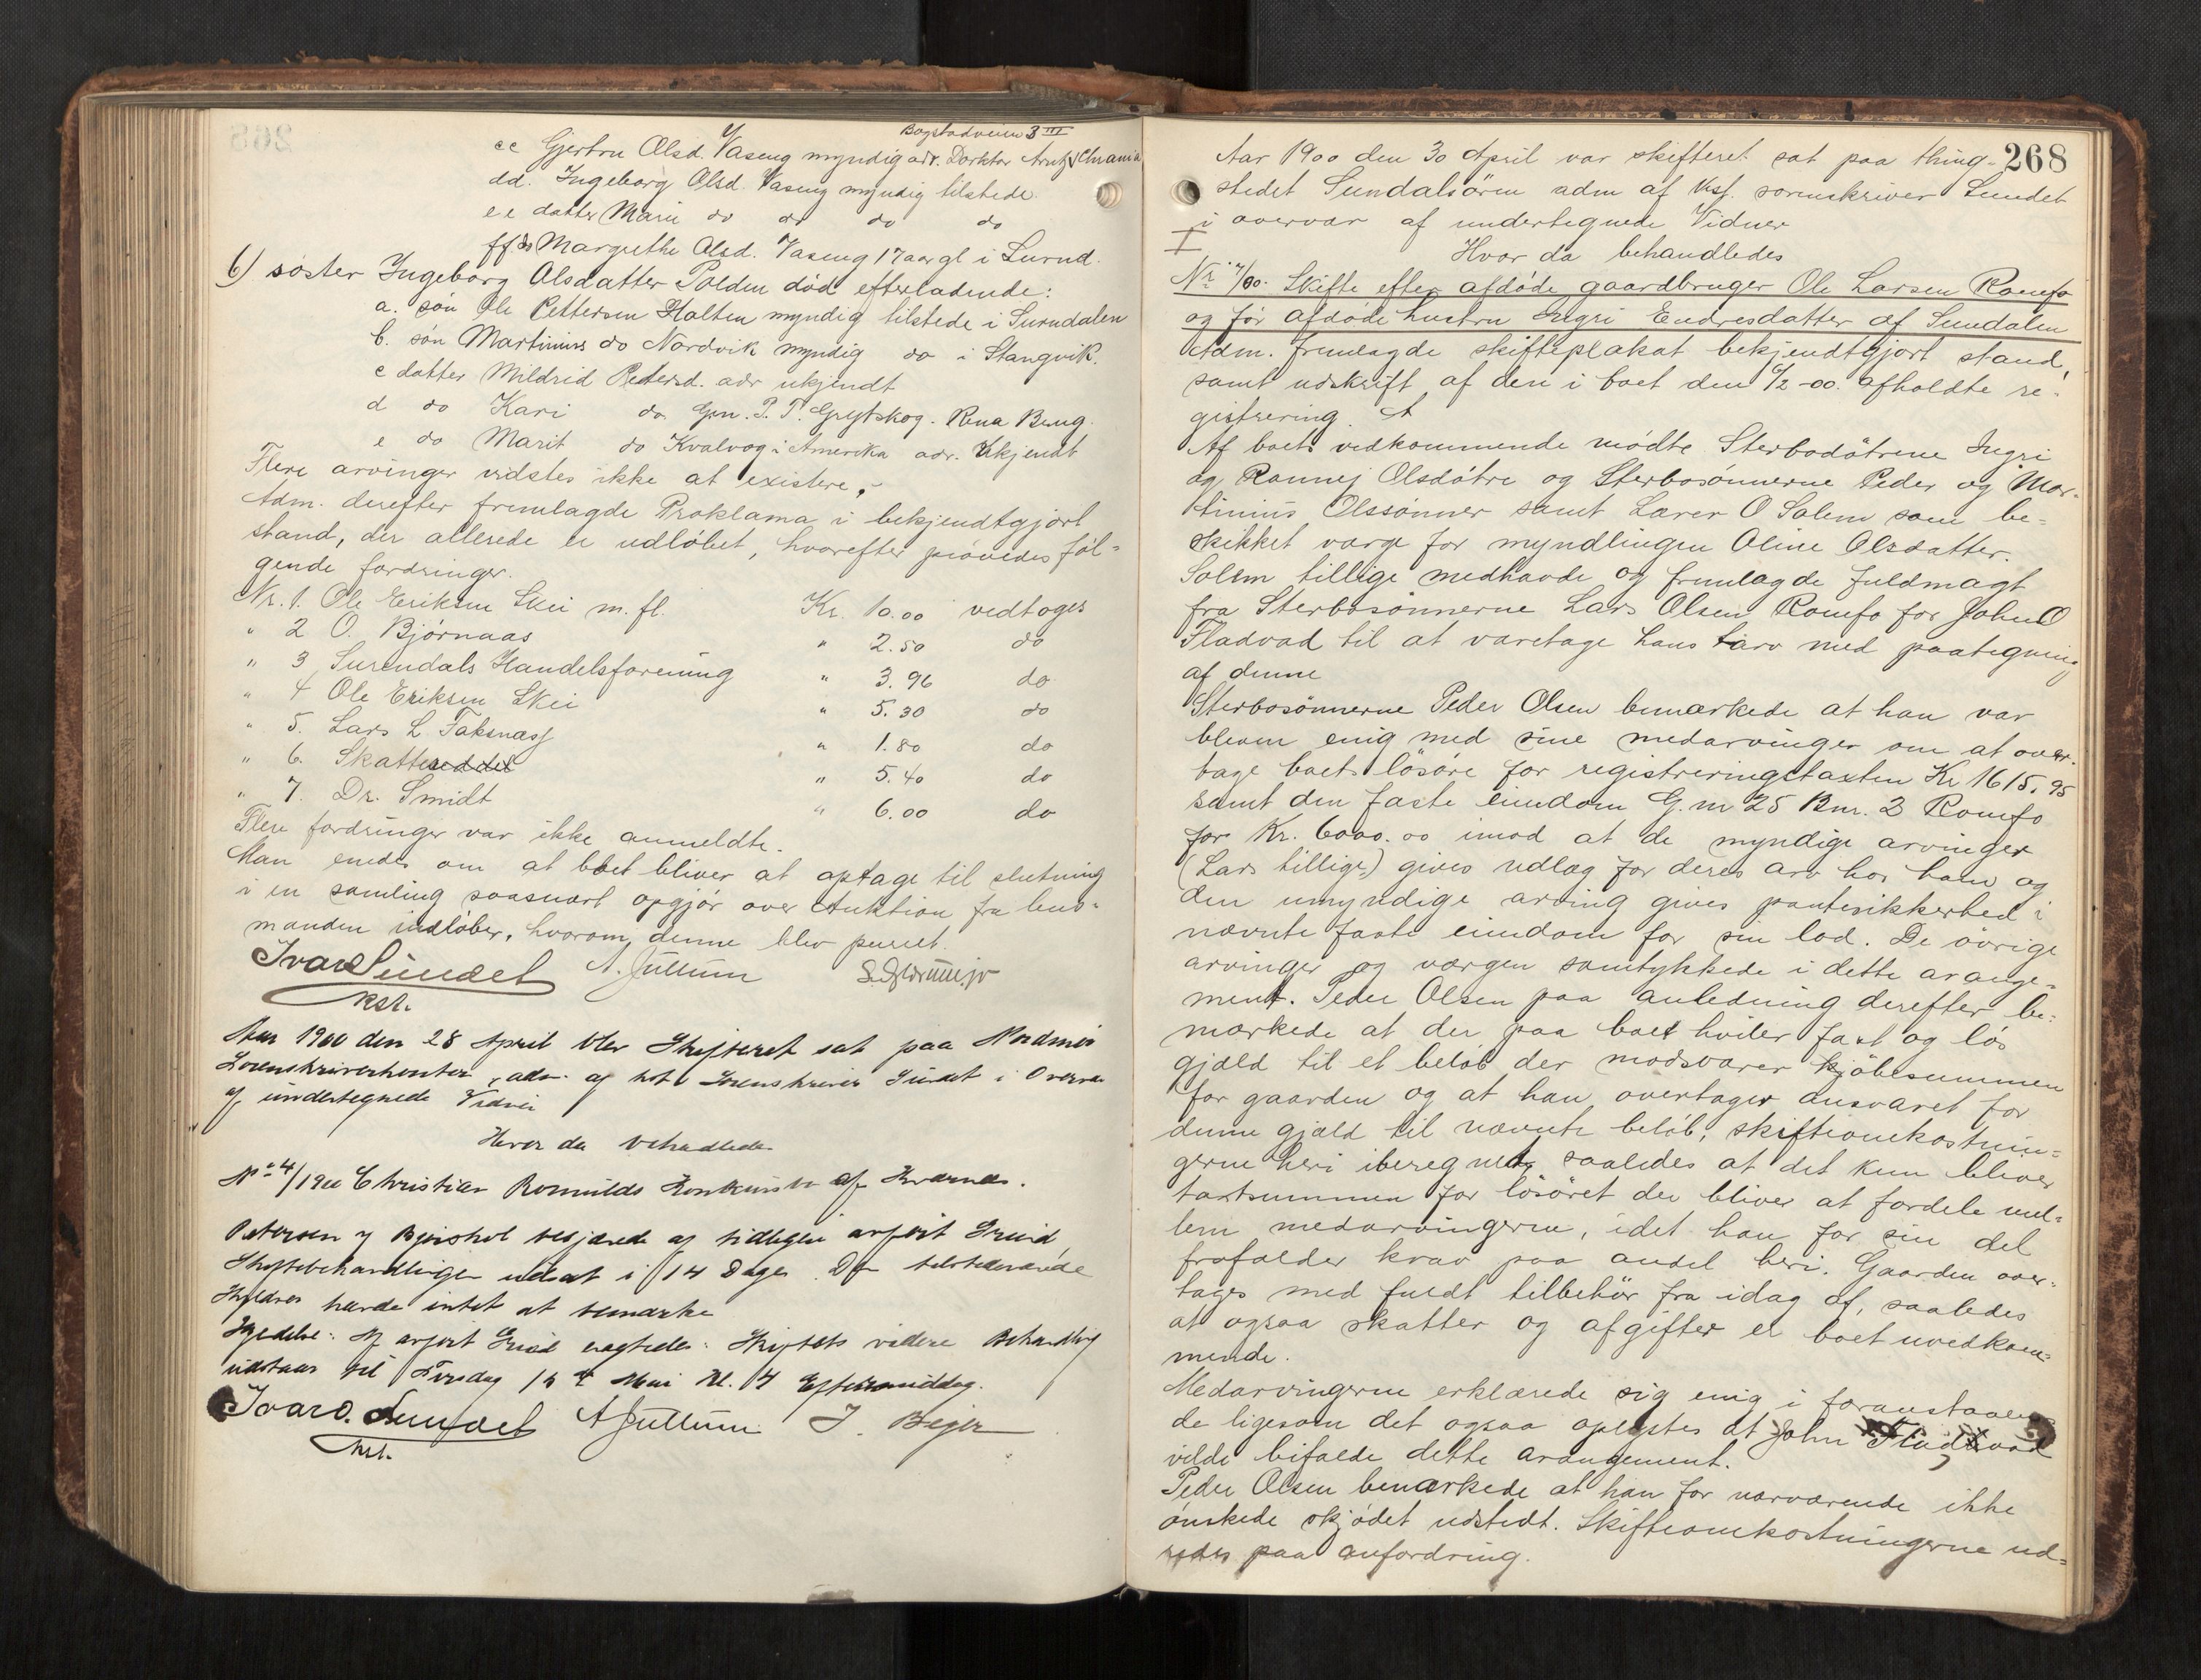 Bogstadveien 3 III
cc Gjertru Olsd. Vaseng myndig adr. Doktor Arntz Chrania
dd. Ingeborg Olsd. Vaseng myndig tilstede.
ee datter Marie do do do do
ff. do Margrethe Olsd. Vaseng 17 aar gl i Surnd.
6) søster Ingeborg Olsdatter Polden død efterladende:
a. søn Ole Pettersen Holten myndig tilstede i Surndalen
b. søn Martinius do Nordvik myndig do i Stangvik.
c datter Mildrid Petersd. adr ukjendt
d do Kari do. Grytskog. Rena
e do Marit do Kvalvog i Amerika adr. Ukjendt
Flere arvinger vidstes ikke at existere.
Adm. derefter fremlagde Proklama i bekjendtgjort
stand, der allerede er udløbet, hvorefter prøvedes føl=
gende fordringer.
Nr. 1. Ole Eriksen Skei m. fl. Kr. 10.00 vedtoges
" 2 O. Bjørnaas " 2.50 do
" 3 Surendals Handelsforening " 3.96 do
" 4 Ole Eriksen Skei " 5.30 do
" 5. Lars L Faksnæs " 1.80 do
" 6. Skatter " 5.40 do
" 7. Dr. Smidt " 6.00 do
Flere fordringer var ikke anmeldte.
Man enedes om at boet bliver at optage til slutning
i en samling saasnart opgjør over Auktion fra lens=
manden indløber, hvorom denne blev purret.
Ivar Sundet A. Jullum
kst.
Aar 1900 den 28 April blev Skifteret sat paa Nordmør
Sorenskriverkontor, adm. af kst. Sorenskriver Sundet i Overvær
af undertegnede Vidner
Hvor da behandledes
No 4/1900 Christian Romulds Konkursbo af Kværnes.
Petersen begjærede af tidligere anført Grund
Skiftebehandlingen udsat i 14 Dage. De tilstedeværende
havde intet at bemærke
Kjendelse: Af anført Grund eragtedes: Skiftets videre Behandling
udstaar til Tirsdag 15de Mai Kl. 4 Eftermiddag.
Ivar O. Sundet A Jullum J. Bejer
kst.
268
Aar 1900 den 30 April var skifteret sat paa thing-
stedet Sundalsøren adm af kst. sorenskriver Sundet
i overvær af undertegnede Vidner
I
Hvor da behandledes
Nr. /00. Skifte efter afdøde gaardbruger Ole Larsen Romfo
og før afdøde hustru Ingri Endresdatter af Sundalen
Adm. fremlagde skifteplakat bekjendtgjort stand,
samt udskrift af den i boet den 9/2-00. afholdte re=
gistrering.
Af boets vedkommende mødte Sterbodøtrene Ingri
og Rønnej Olsdøtre og Sterbosønnerne Peder og Mar=
tinius Olssønner samt Lærer O Solem som be=
skikket værge for myndlingen Oline Olsdatter.
Solem tillige medhavde og fremlagde fuldmagt
fra Sterbosønnerne Lars Olsen Romfo for John O
Fladvad til at varetage hans tarv med paategning
af denne
Sterbosønnerne Peder Olsen bemærkede at han var
bleven enig med sine medarvinger om at over=
tage boets løsøre for registreringstaxten Kr 1615.95
samt den faste eiendom G.nr 25 Bnr. 2 Romfo
for Kr. 6000.00 imod at de myndige arvinger
(Lars tillige) gives udlæg for deres arv hos ham og
den umyndige arving gives pantesikkerhed i
nævnte faste eiendom for sin lod. De øvrige
arvinger og værgen samtykkede i dette arange=
ment. Peder Olsen paa anledning derefter be=
mærkede at der paa boet hviler fast og løs
gjæld til et beløb der modsvarer kjøbesummen
for gaarden og at han overtager ansvaret for
denne gjæld til nævnte beløb, skifteomkostnin=
gerne heri iberegnet, saaledes at det kun bliver
taxtsummen for løsøret der bliver at fordele mel=
lem medarvingerne, idet han for sin del
frafalder krav paa andel heri. Gaarden over=
tages med fuldt tilbehør fra idag af, saaledes
at ogsaa skatter og afgifter er boet uvedkom=
mende.
Medarvingerne erklærede sig enig i foranstaaen
de ligesom det ogsaa oplystes at John Fladvad
vilde bifalde dette arangement.
Peder Olsen bemærkede at han for nærværende ikke
ønskede skjødet udstedt. Skifteomkostningerne ud=
redes paa anfordring.